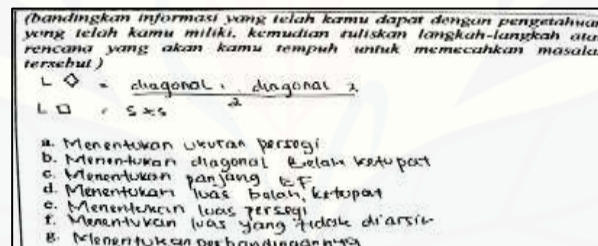 (bandingkan informasi yang telah kamu dapat dengan pengetahuan
yang telah kamu miliki, kemudian tuliskan langkah-langkah ata
rencana yang akan kamu tempuh untuk memecahkan masala
tersebut)
L ◇ = diagonal 1 . diagonal 2
2
L □ = s × s
a. Menentukan ukuran persegi
b. Menentukan diagonal belah ketupat
c. Menentukan panjang EF
d. Menentukan luas belah ketupat
e. Menentukan luas persegi
f. Menentukan luas yang tidak diarsir
g. Menentukan perbandingannya